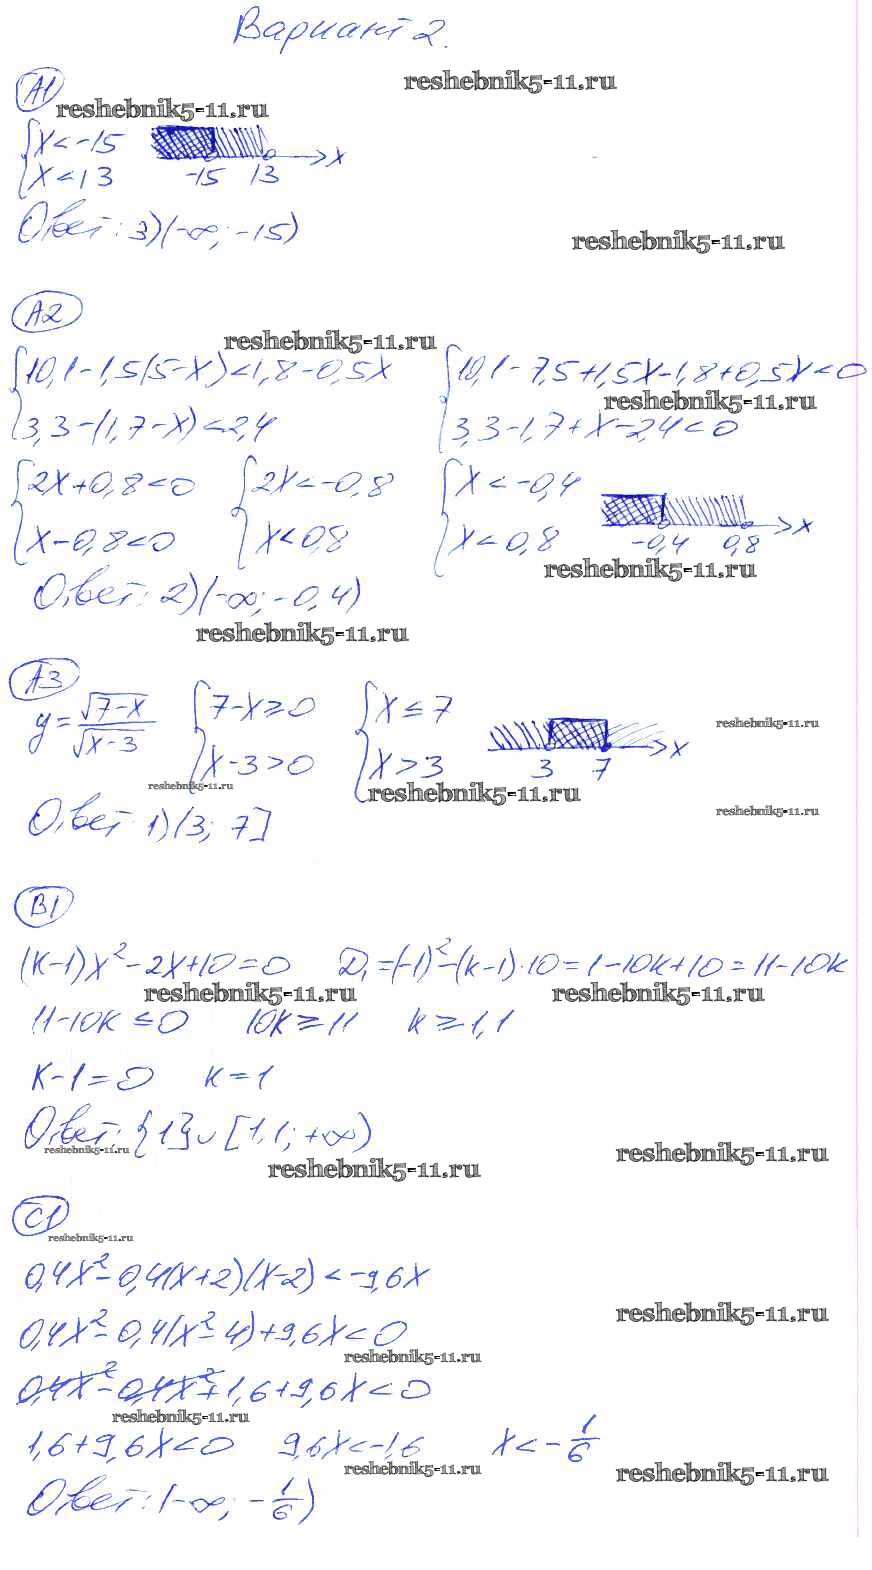 Вариант 2.
А1
reshebnik5-11.ru
reshebnik5-11.ru
{x < -15
{x < 13
-15 13 x
Ответ: 3) (-∞; -15)
reshebnik5-11.ru
А2
reshebnik5-11.ru
{10,1 - 1,5(5-x) < 1,8 - 0,5x {10,1 - 7,5 + 1,5x - 1,8 + 0,5x < 0
reshebnik5-11.ru
{3,3 - (1,7 - x) < 2,4 {3,3 - 1,7 + x - 2,4 < 0
{2x + 0,8 < 0 {2x < -0,8 {x < -0,4
{x - 0,8 < 0 {x < 0,8 {x < 0,8
-0,4 0,8 x
reshebnik5-11.ru
Ответ: 2) (-∞; -0,4)
reshebnik5-11.ru
А3
y = √(7-x)/√(x-3) {7-x ≥ 0 {x ≤ 7
{x-3 > 0 {x > 3
3 7 x
reshebnik5-11.ru
reshebnik5-11.ru
reshebnik5-11.ru
reshebnik5-11.ru
Ответ 1) (3; 7]
В1
(k-1)x² - 2x + 10 = 0 D₁ = (-1)² - (k-1)·10 = 1 - 10k + 10 = 11 - 10k
reshebnik5-11.ru
reshebnik5-11.ru
11 - 10k ≤ 0 10k ≥ 11 k ≥ 1,1
k - 1 = 0 k = 1
Ответ: {1}∪[1,1; +∞)
reshebnik5-11.ru
reshebnik5-11.ru
reshebnik5-11.ru
С1
reshebnik5-11.ru
0,4x² - 0,4(x+2)(x-2) < -9,6x
reshebnik5-11.ru
0,4x² - 0,4(x² - 4) + 9,6x < 0
reshebnik5-11.ru
0,4x² - 0,4x² + 1,6 + 9,6x < 0
reshebnik5-11.ru
1,6 + 9,6x < 0 9,6x < -1,6 x < -1/6
reshebnik5-11.ru
reshebnik5-11.ru
Ответ: (-∞; -1/6)